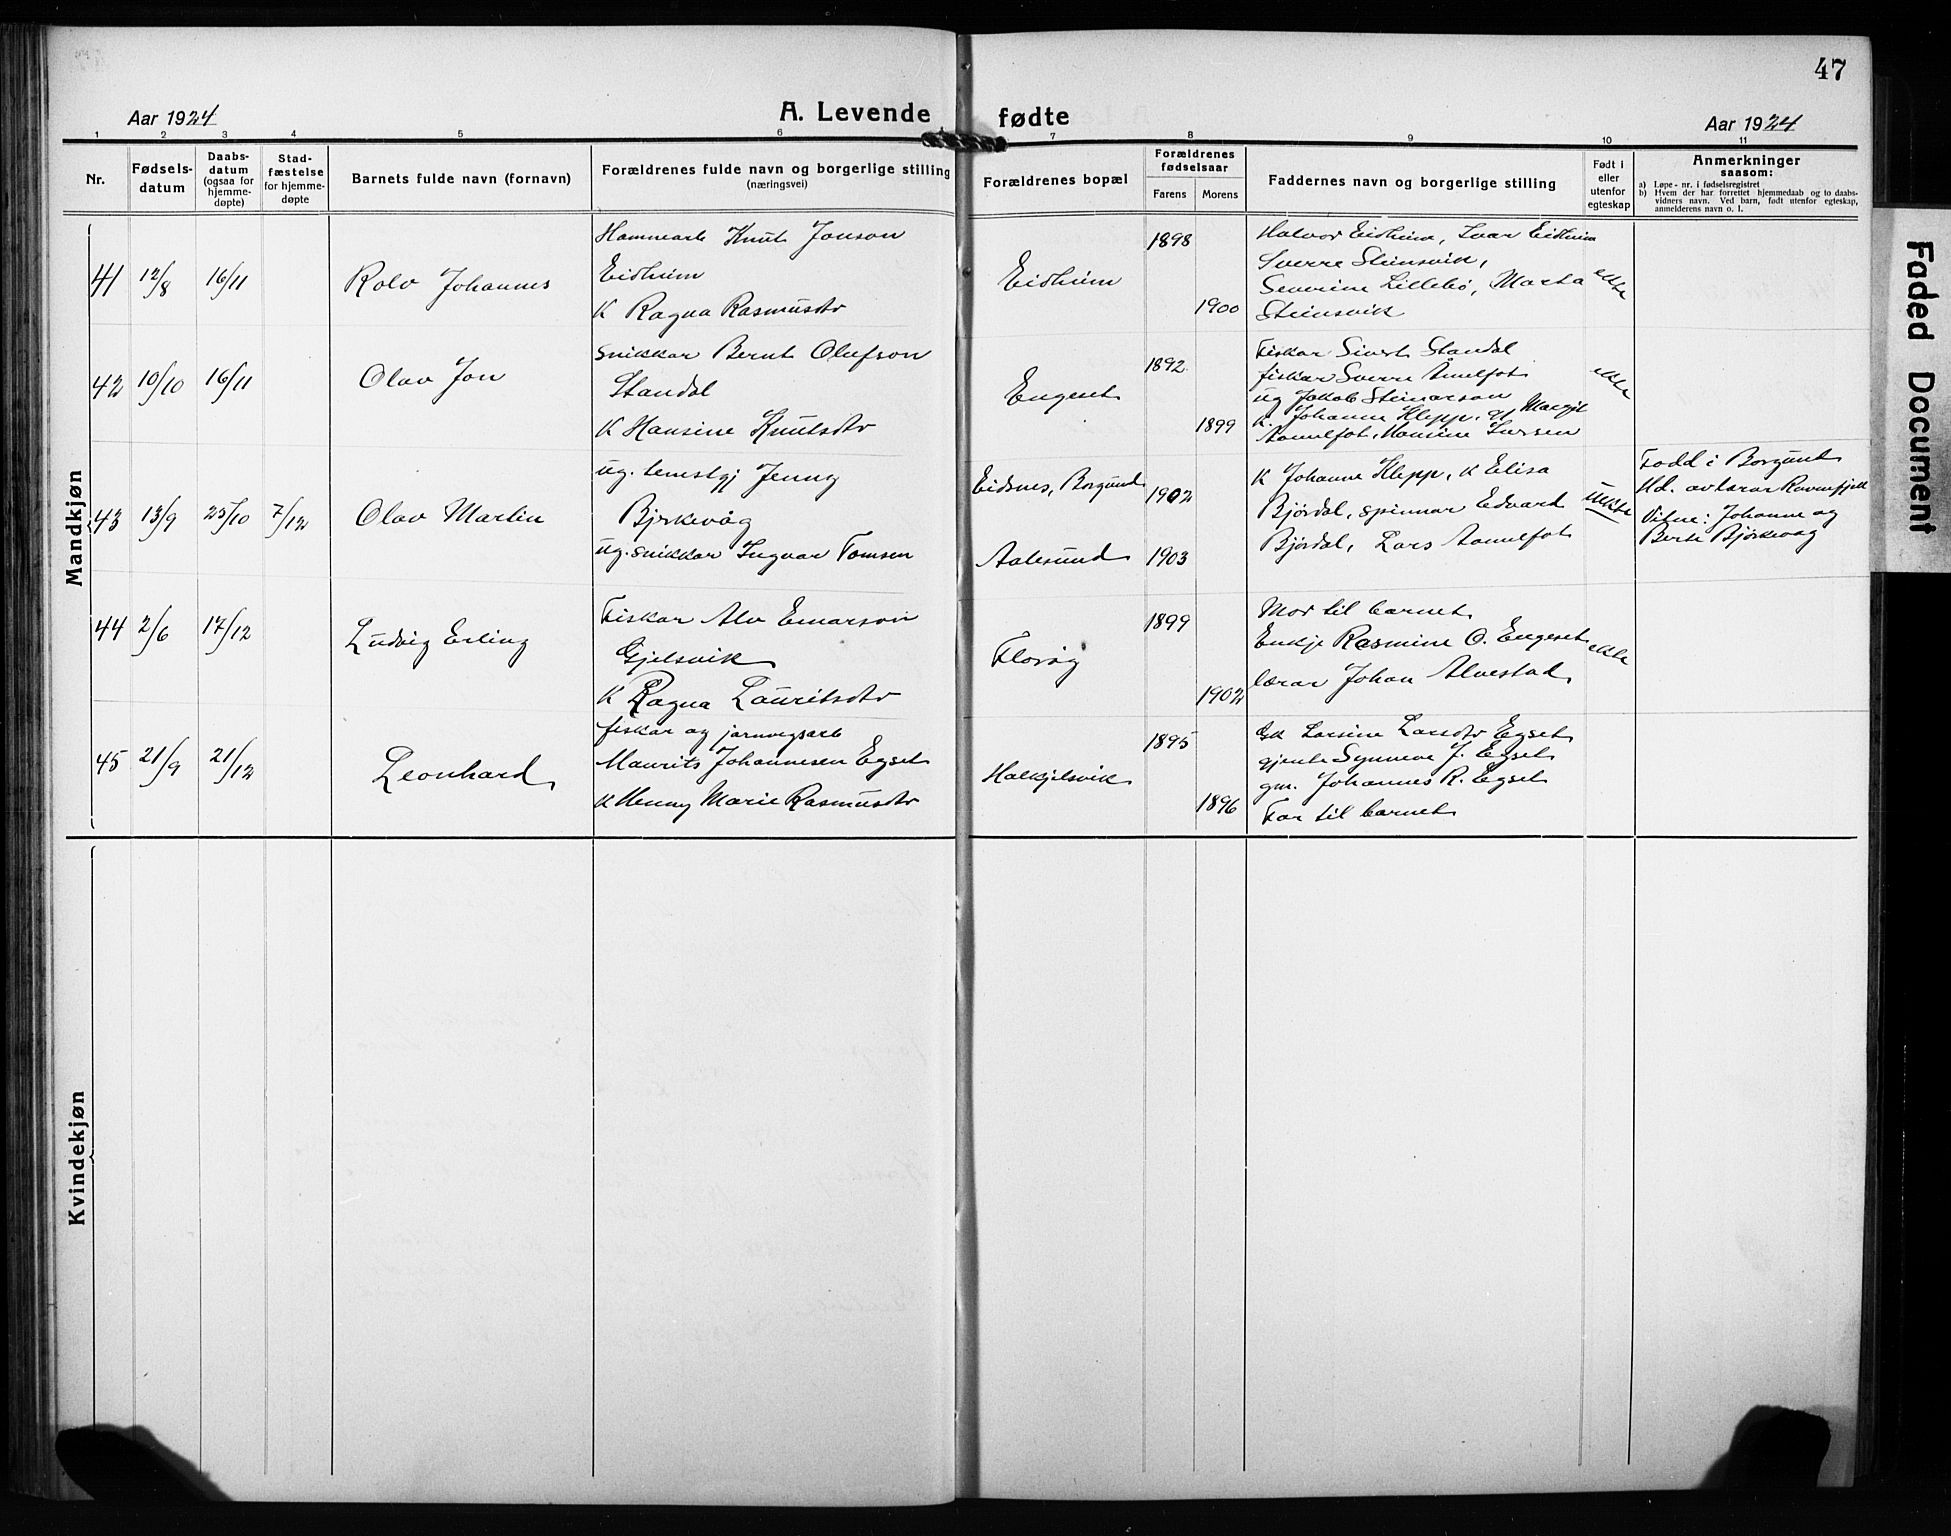 47
Aar 1924
A. Levende fødte
Aar 1924
1 2 3 4 5 6 7 8 9 10 11
Nr.
Fødsels-
datum
Daabs-
datum
(ogsaa for
hjemme-
døpte)
Stad-
fæstelse
for hjemme-
døpte
Barnets fulde navn (fornavn)
Forældrenes fulde navn og borgerlige stilling
(næringsvei)
Forældrenes bopæl
Forældrenes
fødselsaar
Farens Morens
Faddernes navn og borgerlige stilling
Født i
eller
utenfor
egteskap
Anmerkninger
saasom:
a) Løpe-nr. i fødselsregistret
b) Hvem der har forrettet hjemmedaab og to daabs-
vidners navn. Ved barn, født utenfor egteskap,
anmelderens navn o. l.
Mandkjøn
41 12/8 16/11
Rolv Johannes
Hamnearb Knut Jonson
Eidheim
K Ragna Rasmusdtr
Eidheim
1898
1900
Halvor Eidheim, Ivar Eidheim
Sverre Steinsvik,
Severine Lillebö, Marta
Steinsvik
ekte
42 10/10 16/11
Olav Jon
Snikkar Bernt Olufson
Standal
K Hansine Knutsdtr
Engeset
1892
1899
Fiskar Sivert Standal
fiskar Sverre Åmelfot
ug Jakob Steinarson
K. Johanne Klepp. og Margit
Aamelfot, Hansine Iversen
ekte
43 13/9 25/10 7/12
Olav Martin
ug. tenestgj Jenny
Bjrkevåg
ug. snikkar Ingvar Tomsen
Eidsnes, Borgund
Aalesund
1902
1903
K Johanne Klepp, K Elisa
Bjørdal, spinnar Edvard
Bjórdal, Lars Aamelfot
uekte
Fodd i Borgund
Hd. av lærar Ravnefjell
Vitne: Johanne og
Berte Bjørkevag
44 2/6 17/12
Ludvig Erling
Fiskar Alv Einarson
Gjelsvik
K Ragna Lauritsdtr
Florøg
1899
1902
Mor til barnet
Enkje Rasmine O. Engeset
lærar Johan Alvestad
ekte
45 21/9 21/12
Leonhard
fiskar og jarnvegsarb
Maurits Johannesen Egset
K Henny Marie Rasmusdtr
Halkjelsvik
1895
1896
Gk Larsine Larsdtr Egset
gjente Synneve J. Egset
gm. Johannes R. Egset
Far til barnet
Kvindekjøn
Faded Document